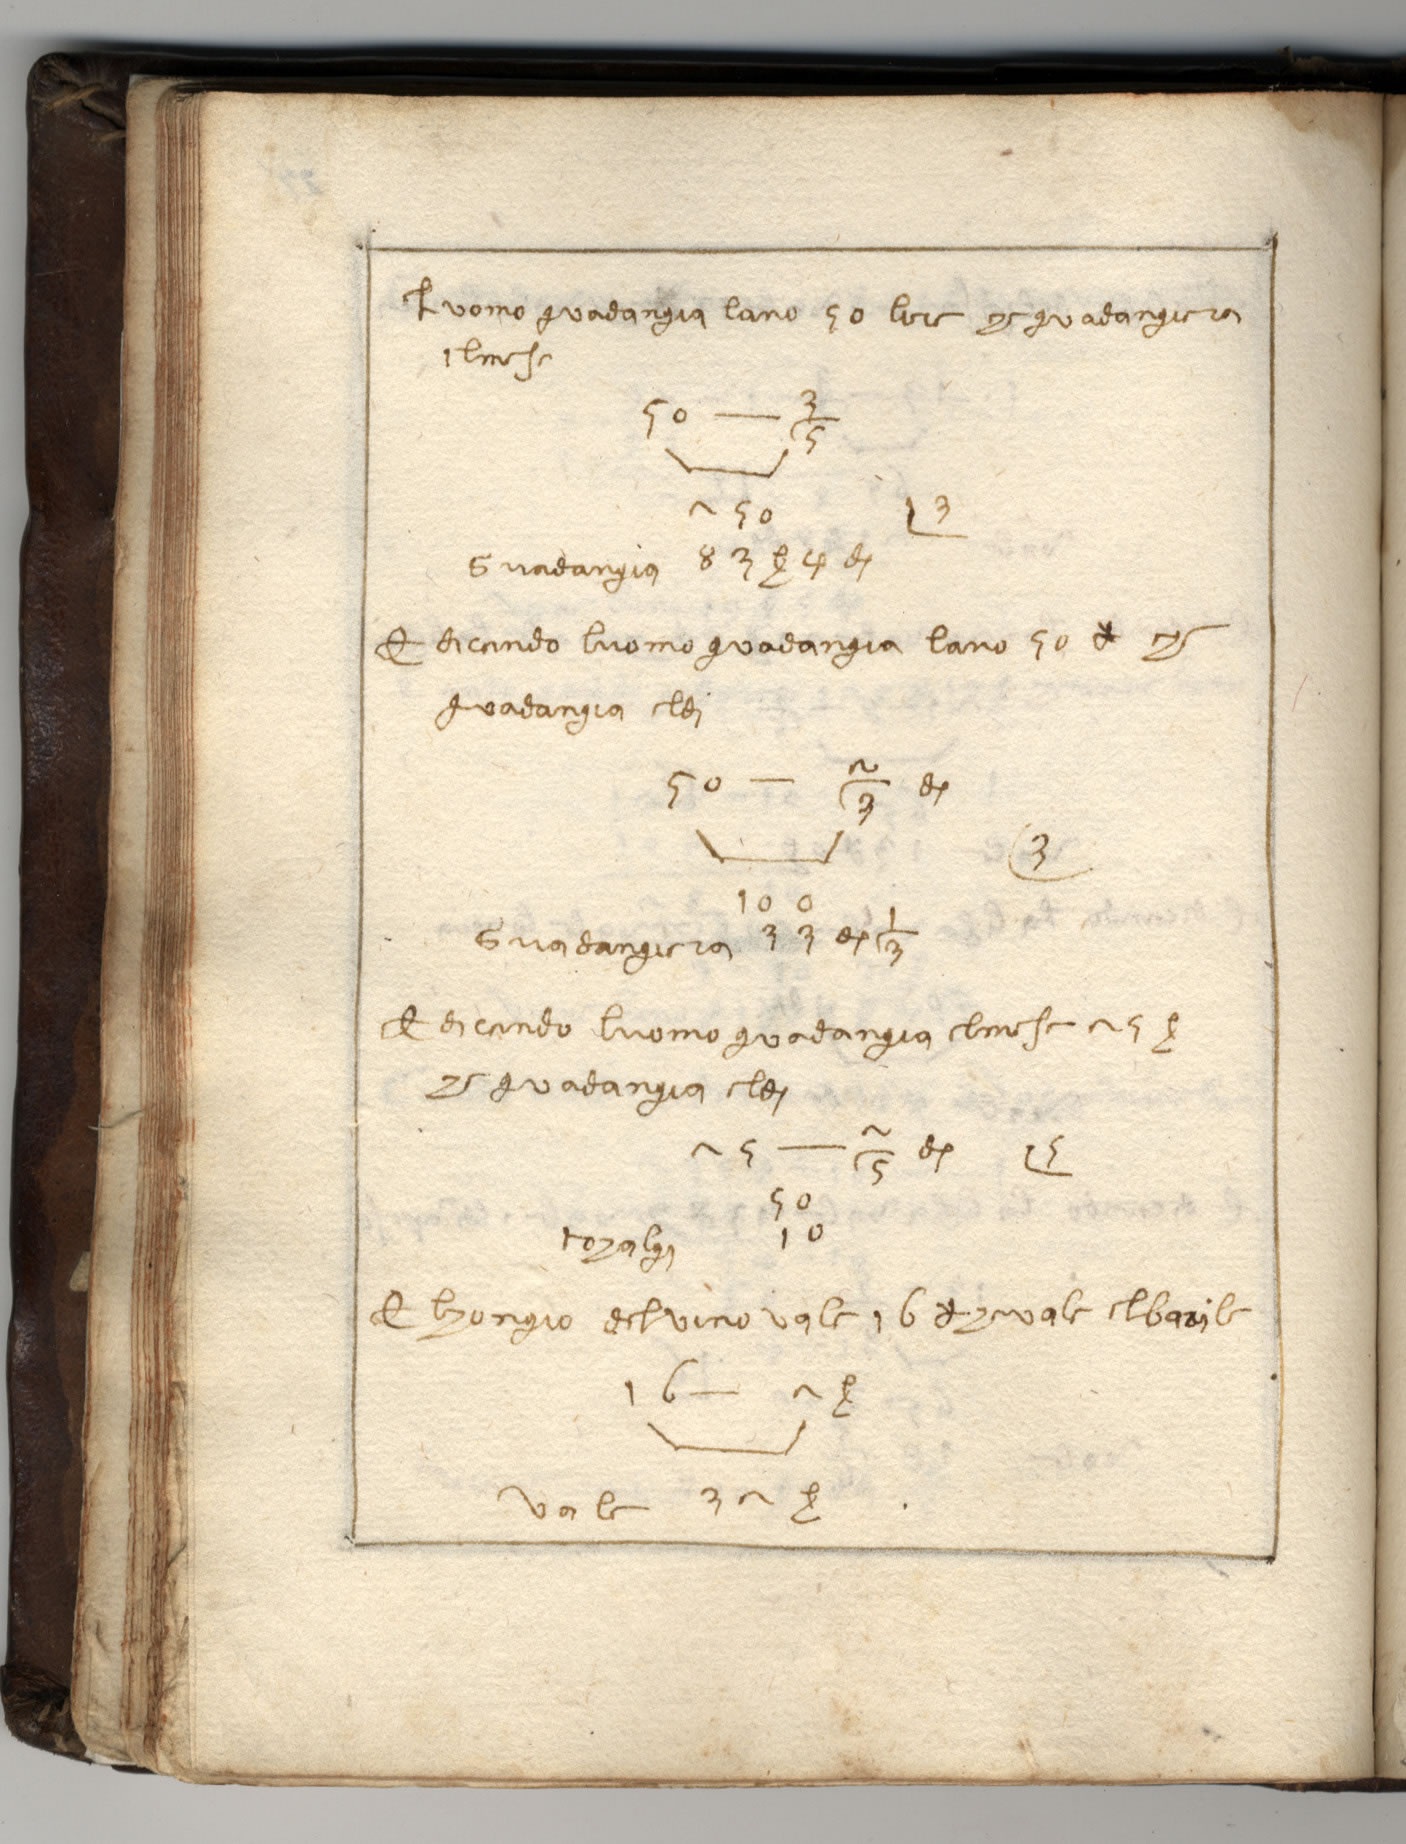 E luomo guadangia lano 50 lire q̃ guadangiera
ilmese
50 — 3/5
250 3
Guadangia 83 ß 4 d
E dicendo luomo guadangia lano 50
guadangia eldi
50 — 2/3 d
3
100
Guadangiera 33 d 1/3
E dicendo luomo guadangia elmese 25 ß
guadangia eldi
25 — 2/5 d 5
50
10
E delvino vale 16 vale elbarile
16 — 2 ß
Vale 32 ß